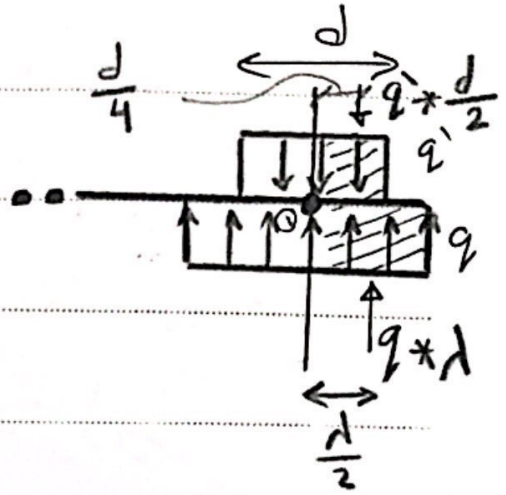 d
d/4
q' * d/2
q'
q
q * λ
λ/2